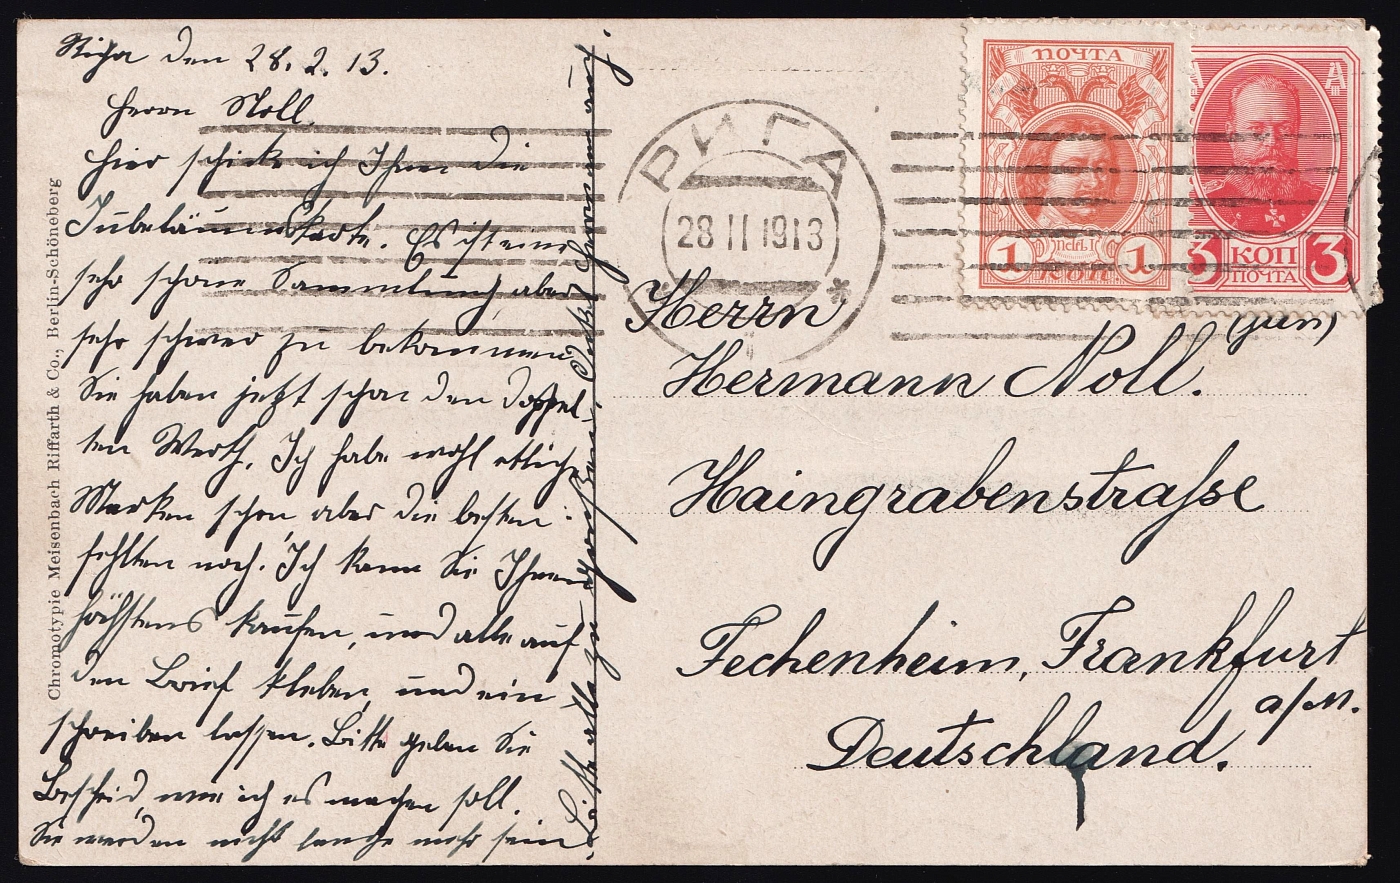 Riga den 28. 2. 13.
Herrn Noll
Hier schicke ich Ihnen die
Jubeläumskarte. Es ist eine
sehr schöne Sammlung, aber
sehr schwer zu bekommen
Sie haben jetzt schon den doppel-
ten Werth. Ich habe wohl etliche
Marken schon aber die besten
fehlten noch. Ich kann Sie Ihnen
höhstens kaufen, und alle auf
den Brief kleben, und ein
schreiben lassen. Bitte geben Sie
Bescheid, wie ich es machen soll.
Sie werden nicht lange mehr sein
Bitte alle zu grüßen
Chromotypie Meisenbach Riffarth & Co., Berlin-Schöneberg
РИГА
28 II 1913
ПОЧТА
1 КОП 1
3 КОП 3
ПОЧТА
Herrn
(jun)
Hermann Noll.
Haingrabenstrasse
Fechenheim, Frankfurt
a/M.
Deutschland.